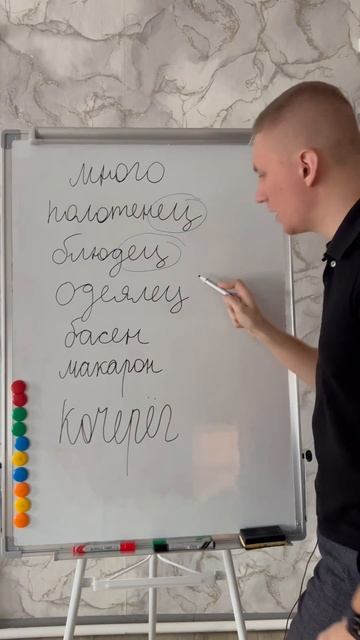 много
полотенец
блюдец
одеялец
басен
макарон
кочерёг